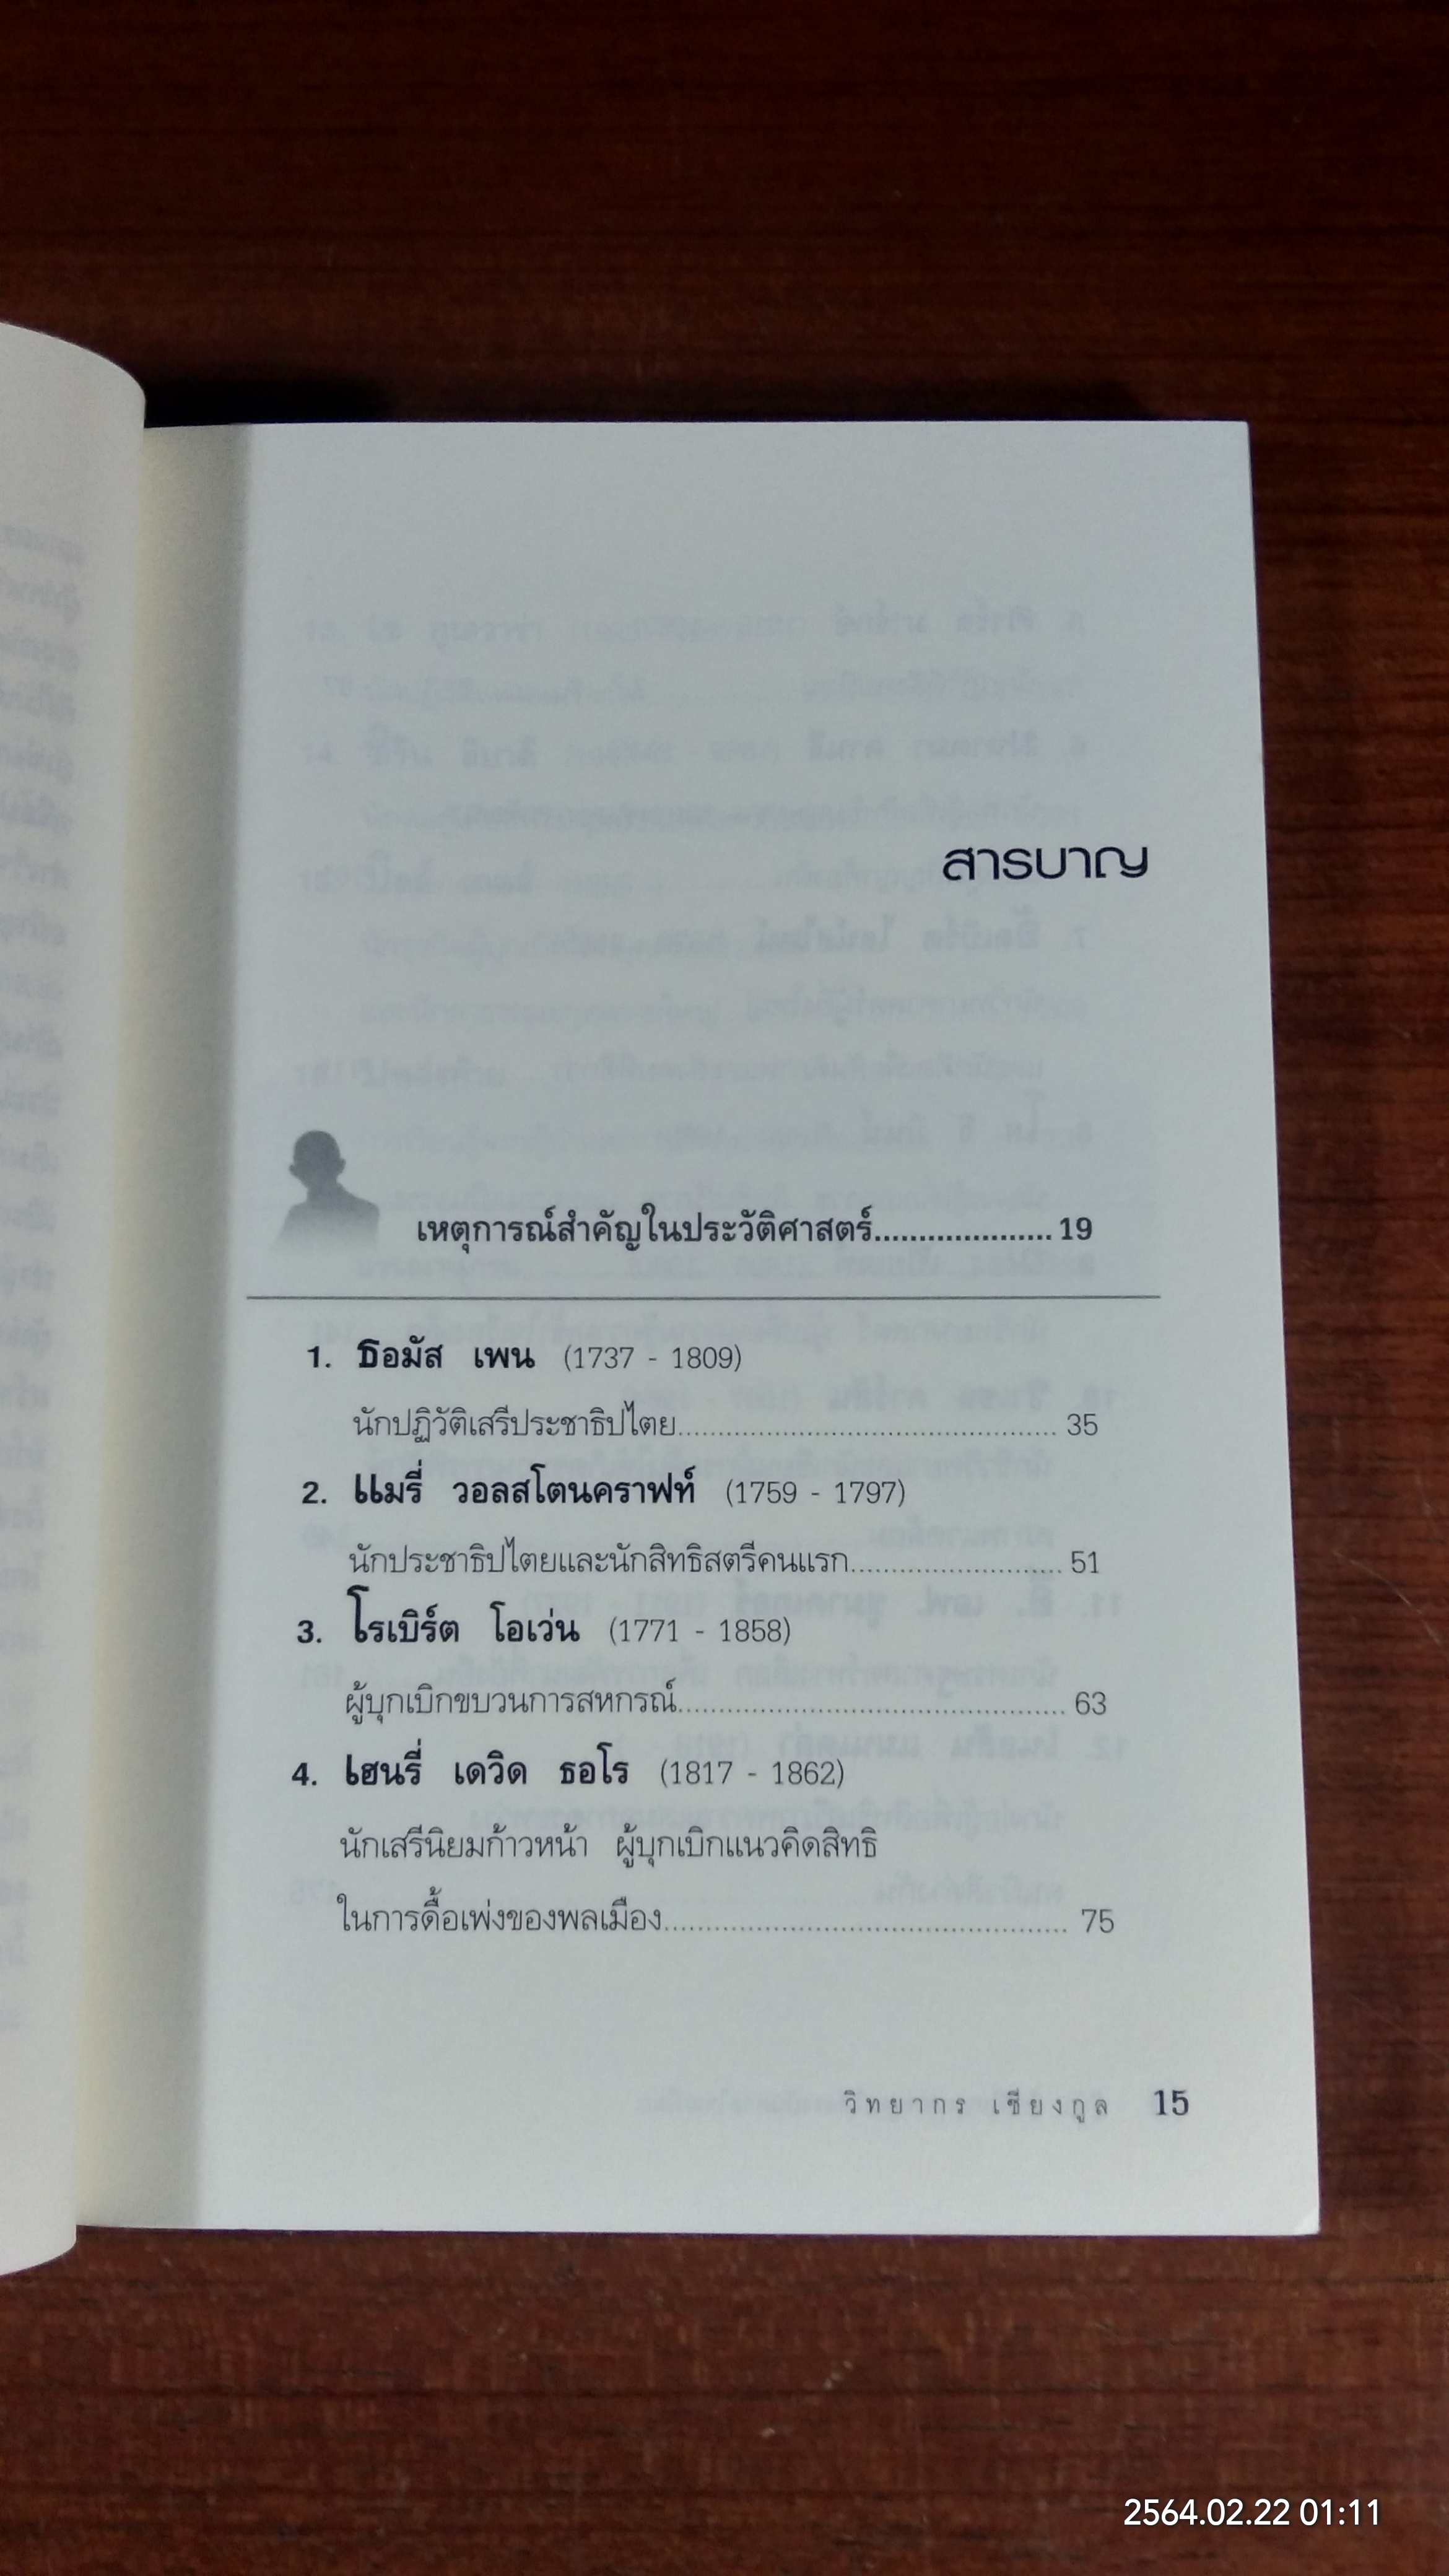 สารบาญ
เหตุการณ์สำคัญในประวัติศาสตร์.....................19
1. ธอมัส เพน (1737 - 1809)
นักปฏิวัติเสรีประชาธิปไตย............................................... 35
2. แมรี่ วอลสโตนคราฟท์ (1759 - 1797)
นักประชาธิปไตยและนักสิทธิสตรีคนแรก.......................... 51
3. โรเบิร์ต โอเว่น (1771 - 1858)
ผู้บุกเบิกขบวนการสหกรณ์................................................ 63
4. เฮนรี่ เดวิด ธอโร (1817 - 1862)
นักเสรีนิยมก้าวหน้า ผู้บุกเบิกแนวคิดสิทธิ
ในการดื้อเพ่งของพลเมือง.................................................. 75
วิทยากร เชียงกูล 15
2564.02.22 01:11